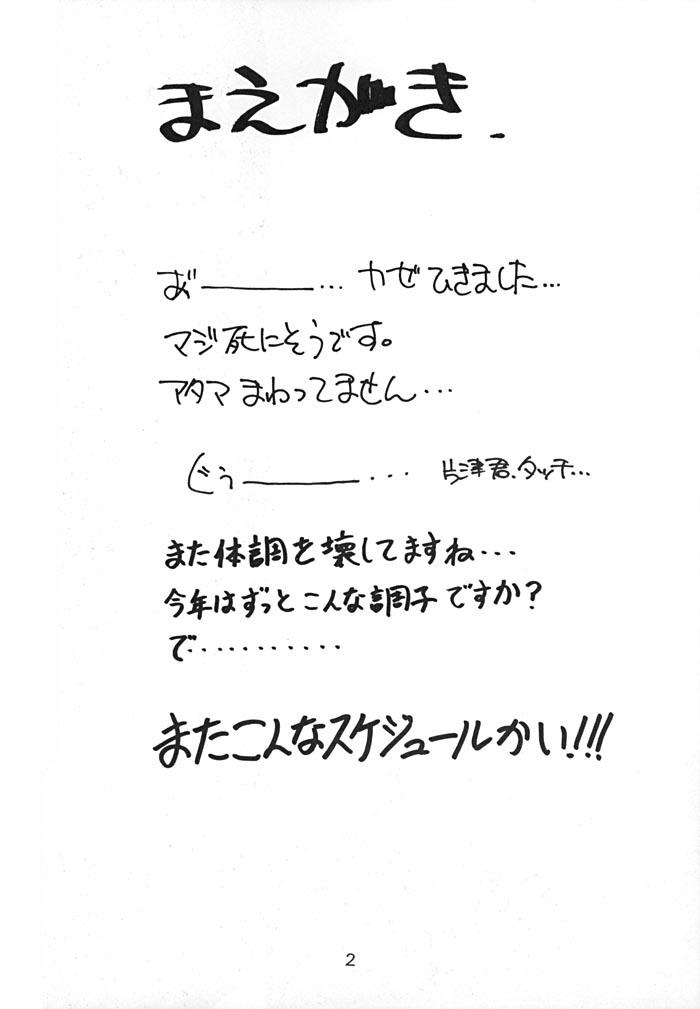 まえがき.
あ゙ーーー… カゼひきました…
マジ死にそうです。
アタマまわってません…
ぐぅーーー… 片津君、タッチ…
また体調を壊してますね…
今年はずっとこんな調子ですか？
で‥‥‥‥‥
またこんなスケジュールかい!!!
2